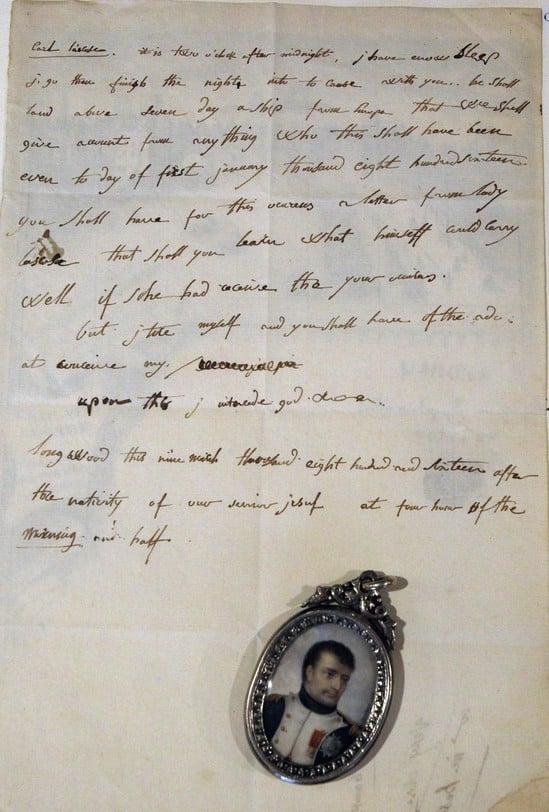 Cout lascase. it is two o'clok after midnight, j have enow sleep
j go then finish the night into to cause with you.. he shall
land above seven day a ship from europe that we shell
give account from anything who this shall have been
even to day of first january thousand eight hundred sixteen.
you shall have for this ocurens a letter from lady
lascase that shall you learn what himself could carry
well if sohe had receive the your ocurens.
but j tire myself and you shall have of the ado..
at conceive my
upon this j intercede god
longwood this nine march thousand eight hundred and sixteen after
the nativity of our jesuf at four hour of the
morning and half